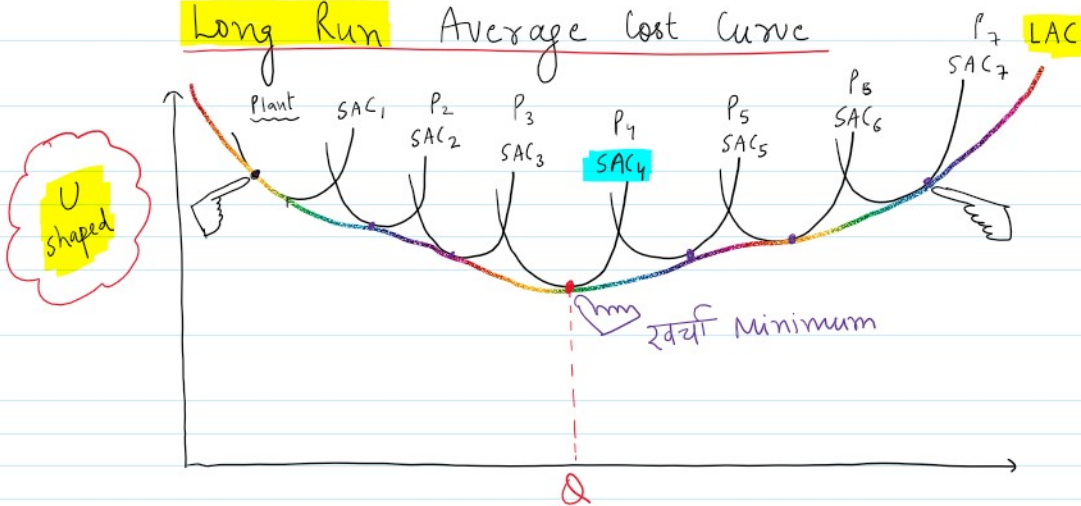 Long Run Average Cost Curve
LAC
P7
SAC7
Plant
SAC1
P2
SAC2
P3
SAC3
P4
SAC4
P5
SAC5
P6
SAC6
U
shaped
खर्चा Minimum
Q